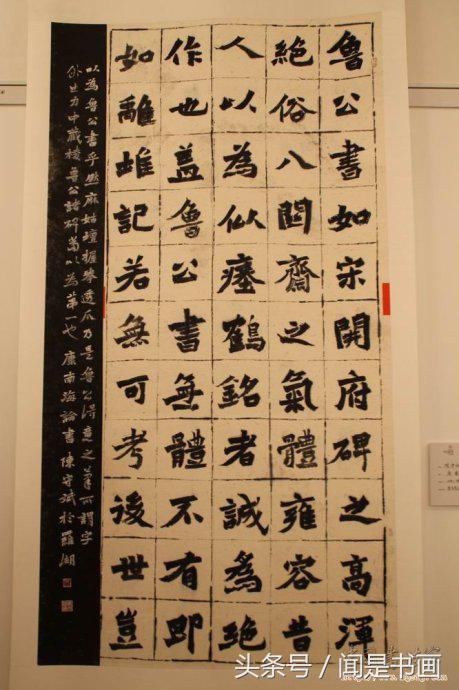 魯公書如宋開府碑之高渾
絕俗八關齋之氣體雍容昔
人以為似瘞鶴銘者誠為絕
作也蓋魯公書無體不有即
如離堆記若無可考後世豈
以為魯公書乎然麻姑壇握拳透爪乃是魯公得意之筆所謂字
外出力中藏棱魯公諸碑當以為第一也 康南海論書 陳守斌於羅湖
头条号 / 闻是书画